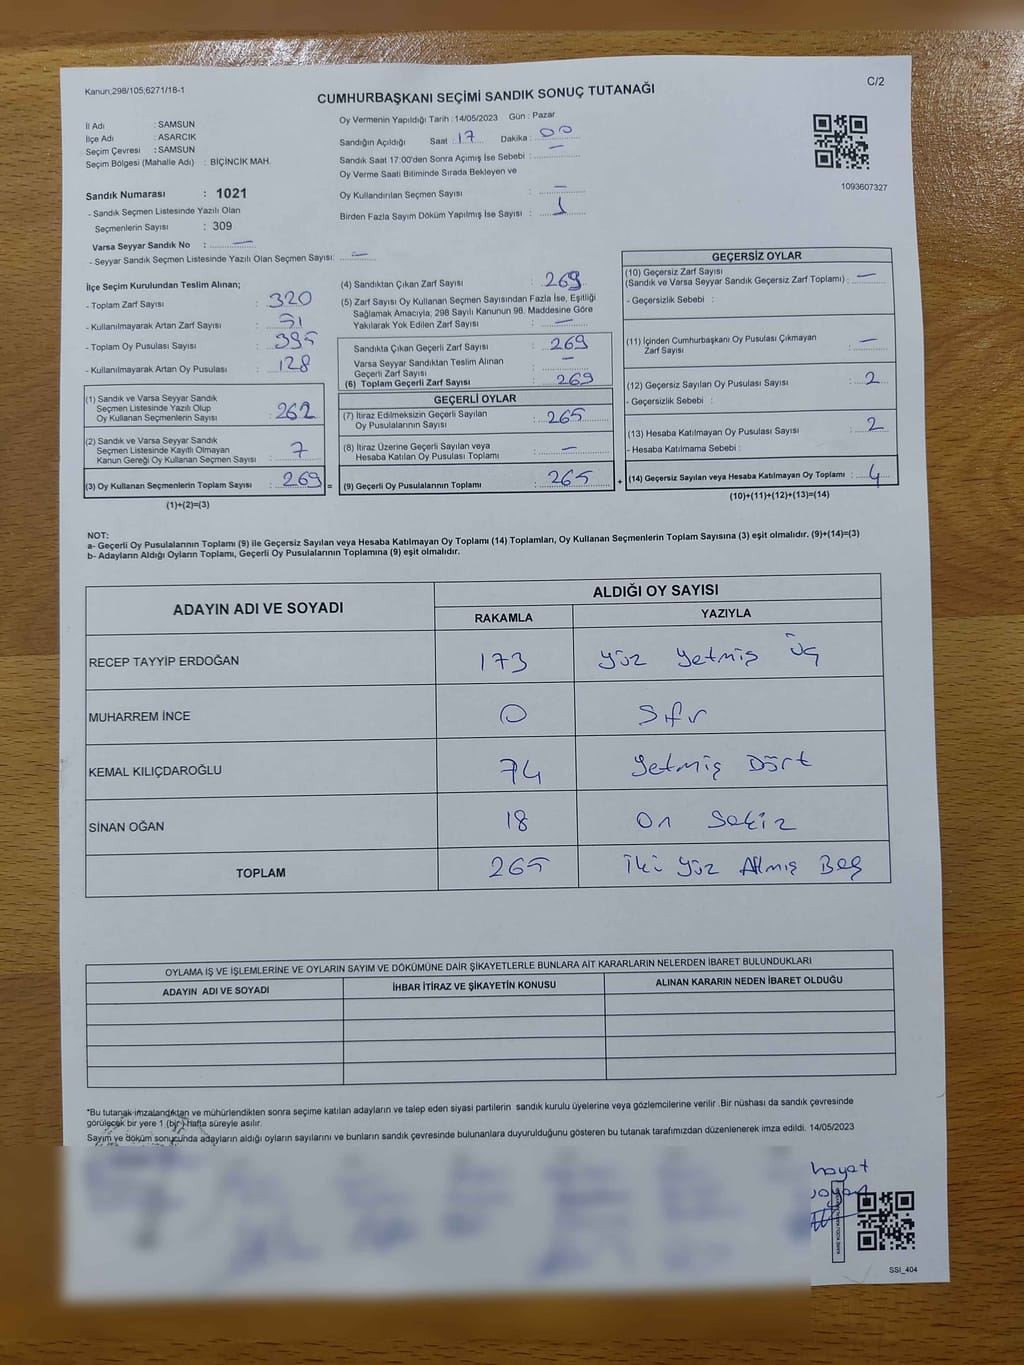 Kanun,298/105;6271/18-1
C/2
CUMHURBAŞKANI SEÇİMİ SANDIK SONUÇ TUTANAĞI
İl Adı : SAMSUN
İlçe Adı : ASARCIK
Seçim Çevresi : SAMSUN
Seçim Bölgesi (Mahalle Adı) : BİÇİNCİK MAH.
Sandık Numarası : 1021
- Sandık Seçmen Listesinde Yazılı Olan
Seçmenlerin Sayısı : 309
Varsa Seyyar Sandık No : —
- Seyyar Sandık Seçmen Listesinde Yazılı Olan Seçmen Sayısı: —
Oy Vermenin Yapıldığı Tarih : 14/05/2023 Gün : Pazar
Sandığın Açıldığı Saat : 17 Dakika : 00
Sandık Saat 17:00'den Sonra Açımış İse Sebebi : —
Oy Verme Saati Bitiminde Sırada Bekleyen ve
Oy Kullandırılan Seçmen Sayısı : —
Birden Fazla Sayım Döküm Yapılmış İse Sayısı : 1
1093607327
İlçe Seçim Kurulundan Teslim Alınan;
- Toplam Zarf Sayısı : 320
- Kullanılmayarak Artan Zarf Sayısı : 51
- Toplam Oy Pusulası Sayısı : 395
- Kullanılmayarak Artan Oy Pusulası : 128
(1) Sandık ve Varsa Seyyar Sandık
Seçmen Listesinde Yazılı Olup
Oy Kullanan Seçmenlerin Sayısı : 262
(2) Sandık ve Varsa Seyyar Sandık
Seçmen Listesinde Kayıtlı Olmayan
Kanun Gereği Oy Kullanan Seçmen Sayısı : 7
(3) Oy Kullanan Seçmenlerin Toplam Sayısı : 269 =
(1)+(2)=(3)
(4) Sandıktan Çıkan Zarf Sayısı : 269
(5) Zarf Sayısı Oy Kullanan Seçmen Sayısından Fazla İse, Eşitliği
Sağlamak Amacıyla; 298 Sayılı Kanunun 98. Maddesine Göre
Yakılarak Yok Edilen Zarf Sayısı : —
Sandıkta Çıkan Geçerli Zarf Sayısı : 269
Varsa Seyyar Sandıktan Teslim Alınan
Geçerli Zarf Sayısı : —
(6) Toplam Geçerli Zarf Sayısı : 269
GEÇERLİ OYLAR
(7) İtiraz Edilmeksizin Geçerli Sayılan
Oy Pusulalarının Sayısı : 265
(8) İtiraz Üzerine Geçerli Sayılan veya
Hesaba Katılan Oy Pusulası Toplamı : —
(9) Geçerli Oy Pusulalarının Toplamı : 265 +
GEÇERSİZ OYLAR
(10) Geçersiz Zarf Sayısı
(Sandık ve Varsa Seyyar Sandık Geçersiz Zarf Toplamı) : —
- Geçersizlik Sebebi :
(11) İçinden Cumhurbaşkanı Oy Pusulası Çıkmayan
Zarf Sayısı : —
(12) Geçersiz Sayılan Oy Pusulası Sayısı : 2
- Geçersizlik Sebebi :
(13) Hesaba Katılmayan Oy Pusulası Sayısı : 2
- Hesaba Katılmama Sebebi :
(14) Geçersiz Sayılan veya Hesaba Katılmayan Oy Toplamı : 4
(10)+(11)+(12)+(13)=(14)
NOT:
a- Geçerli Oy Pusulalarının Toplamı (9) ile Geçersiz Sayılan veya Hesaba Katılmayan Oy Toplamı (14) Toplamları, Oy Kullanan Seçmenlerin Toplam Sayısına (3) eşit olmalıdır. (9)+(14)=(3)
b- Adayların Aldığı Oyların Toplamı, Geçerli Oy Pusulalarının Toplamına (9) eşit olmalıdır.
ADAYIN ADI VE SOYADI ALDIĞI OY SAYISI
RAKAMLA YAZIYLA
RECEP TAYYİP ERDOĞAN 173 Yüz Yetmiş Üç
MUHARREM İNCE 0 Sıfır
KEMAL KILIÇDAROĞLU 74 Yetmiş Dört
SİNAN OĞAN 18 On Sekiz
TOPLAM 265 İki Yüz Altmış Beş
OYLAMA İŞ VE İŞLEMLERİNE VE OYLARIN SAYIM VE DÖKÜMÜNE DAİR ŞİKAYETLERLE BUNLARA AİT KARARLARIN NELERDEN İBARET BULUNDUKLARI
ADAYIN ADI VE SOYADI İHBAR İTİRAZ VE ŞİKAYETİN KONUSU ALINAN KARARIN NEDEN İBARET OLDUĞU
*Bu tutanak imzalandıktan ve mühürlendikten sonra seçime katılan adayların ve talep eden siyasi partilerin sandık kurulu üyelerine veya gözlemcilerine verilir .Bir nüshası da sandık çevresinde
görülecek bir yere 1 (bir) hafta süreyle asılır.
Sayım ve döküm sonucunda adayların aldığı oyların sayılarını ve bunların sandık çevresinde bulunanlara duyurulduğunu gösteren bu tutanak tarafımızdan düzenlenerek imza edildi. 14/05/2023
hayat
SSI_404